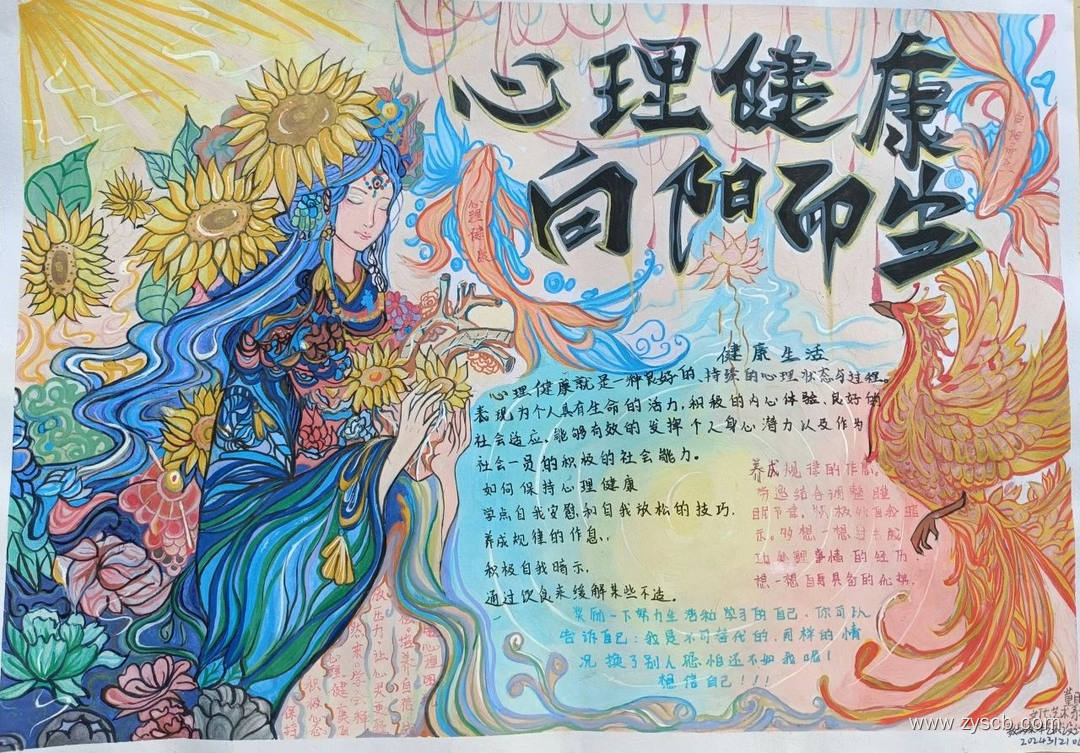 心理健康
向阳而生
心理健康
健康生活
心理健康就是一种良好的、持续的心理状态与过程。
表现为个人具有生命的活力,积极的内心体验,良好的
社会适应。能够有效的发挥个人身心潜力以及作为
社会一员的积极的社会能力。
如何保持心理健康
学点自我安慰和自我放松的技巧.
养成规律的作息,
积极自我暗示,
通过饮食来缓解某些不适。
养成规律的作息。
劳逸结合调整睡
眠节律。积极的自我
乐。多想一想过去成
功处理事情的经历
想一想自身具备的
奖励一下努力生活和学习的自己,你可以
告诉自己:我是不可替代的,同样的情
况换了别人恐怕还不如我呢!
相信自己!!!
www.zyscb.com